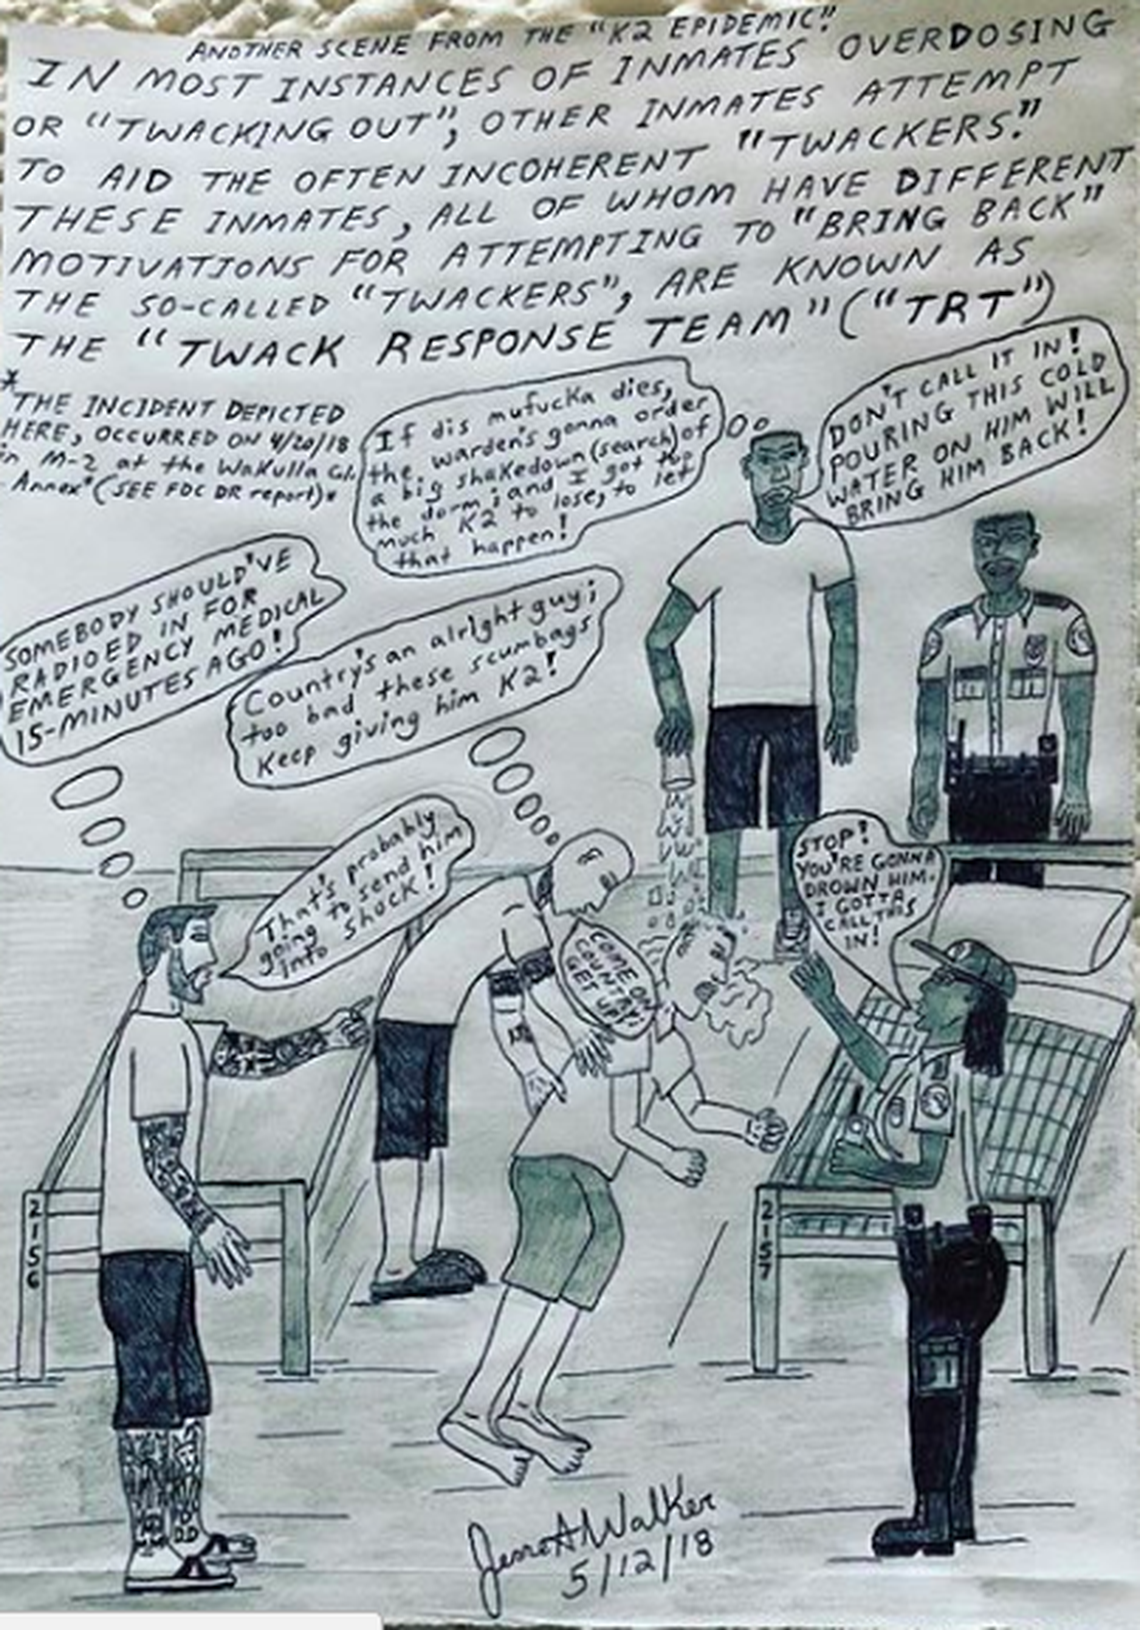 ANOTHER SCENE FROM THE "K2 EPIDEMIC"!
IN MOST INSTANCES OF INMATES OVERDOSING
OR "TWACKING OUT", OTHER INMATES ATTEMPT
TO AID THE OFTEN INCOHERENT "TWACKERS."
THESE INMATES, ALL OF WHOM HAVE DIFFERENT
MOTIVATIONS FOR ATTEMPTING TO "BRING BACK"
THE SO-CALLED "TWACKERS", ARE KNOWN AS
THE "TWACK RESPONSE TEAM" ("TRT")
*THE INCIDENT DEPICTED
HERE, OCCURRED ON 4/20/18
in M-2 at the Wakulla C.I.
Annex* (SEE FDC DR report)*
If dis mufucka dies,
the warden's gonna order
a big shakedown (search) of
the dorm; and I got too
much K2 to loses to let
that happen!
DON'T CALL IT IN!
POURING THIS COLD
WATER ON HIM WILL
BRING HIM BACK!
SOMEBODY SHOULD'VE
RADIOED IN FOR
EMERGENCY MEDICAL
15-MINUTES AGO!
Country's an alright guy;
too bad these scumbags
Keep giving him K2!
That's probably
going to send him
into shock!
STOP!
YOU'RE GONNA
DROWN HIM.
I GOTTA
CALL THIS
IN!
COME ON
COUNTRY!
GET UP!
2156
2157
Walker
5/12/18